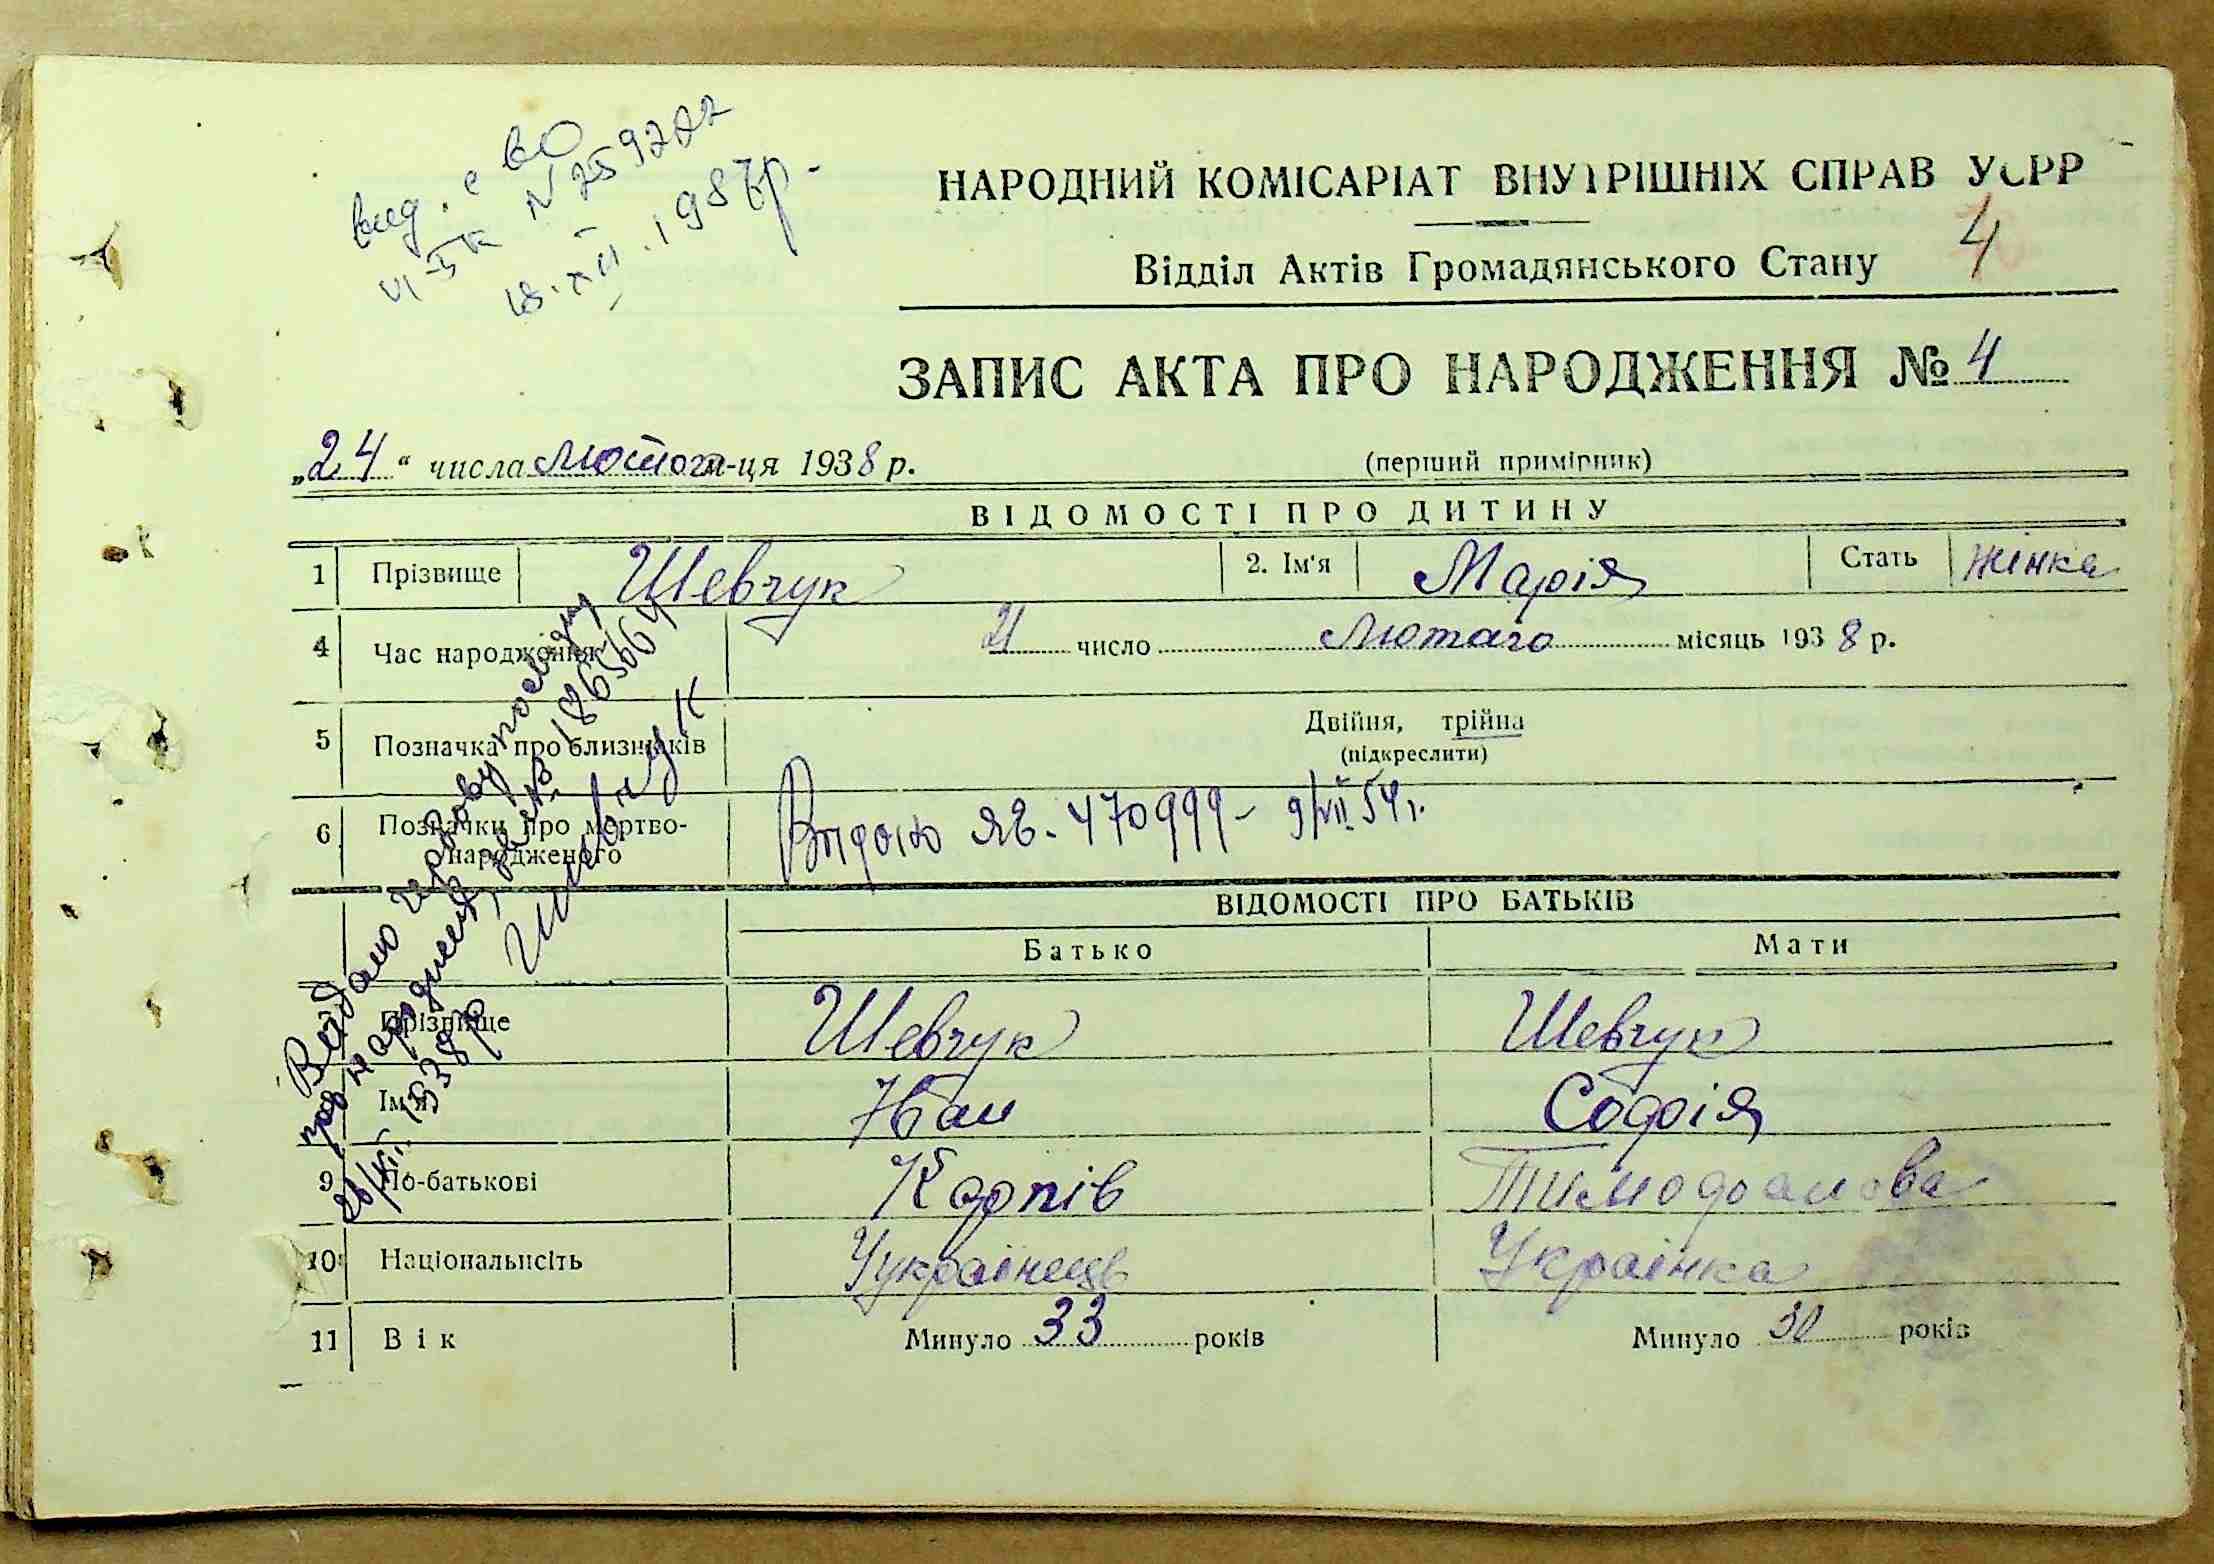 вид. с ВО
VI-БК N 259272
18.XII.1987р.
НАРОДНИЙ КОМІСАРІАТ ВНУТРІШНІХ СПРАВ УСРР
Відділ Актів Громадянського Стану
4
ЗАПИС АКТА ПРО НАРОДЖЕННЯ № 4
„24“ числа лютого м-ця 1938 р. (перший примірник)
ВІДОМОСТІ ПРО ДИТИНУ
1 Прізвище Шевчук 2. Ім'я Марія Стать жінка
4 Час народження 21 число Лютаго місяць 1938 р.
5 Позначка про близнюків Двійня, трійна
(підкреслити)
6 Позначки про мертво-
народженого
Видано ЯБ-470999- 9/VII.54 г.
ВІДОМОСТІ ПРО БАТЬКІВ
Батько Мати
Прізвище Шевчук Шевчук
Ім'я Іван Софія
9 По-батькові Карпів Тимофаมова
10 Національність Українець Українка
11 Вік Минуло 33 років Минуло 30 років
Видано чергову посвідку
про народжен, за № 1865664
26/XII. 1938 р. Шевчук